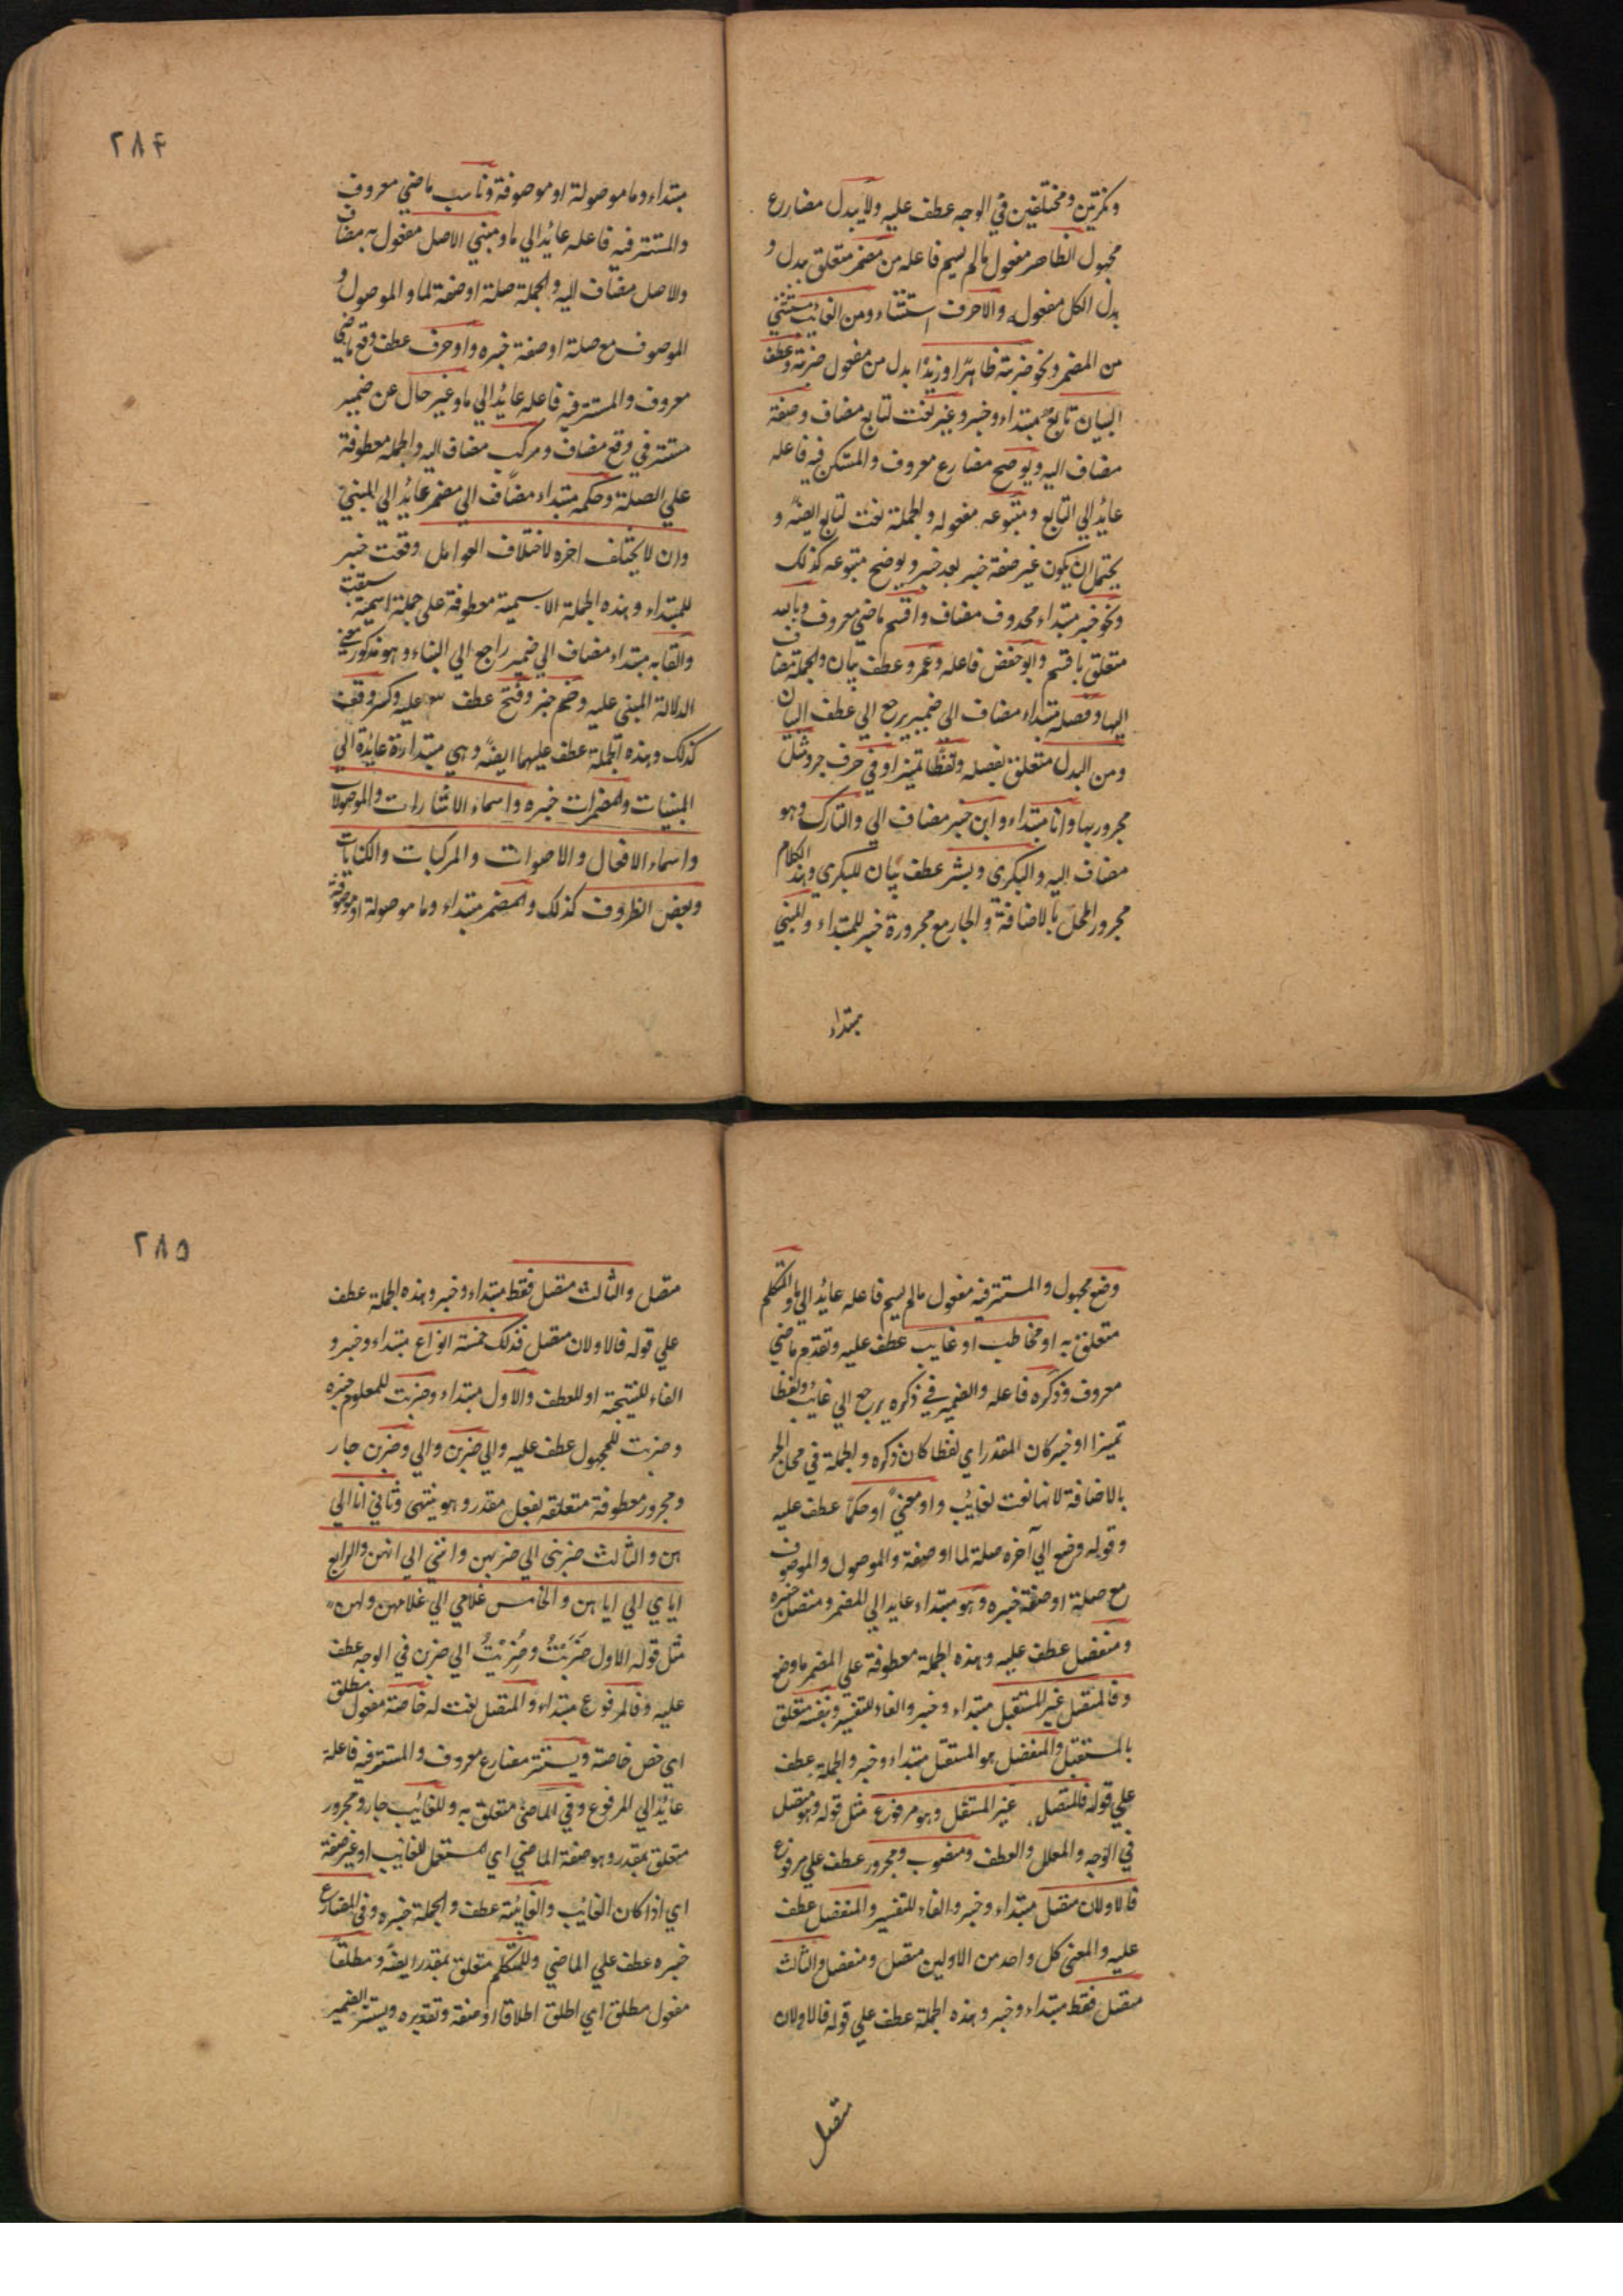 ونكرتين ومختلفين في الوجه عطف عليه ولا يبدل مضارع
مجهول الظاهر مفعول مالم يسم فاعله من مضمر متعلق ببدل و
بدل الكل مفعوله والا حرف استثناء ومن الغائب مستثنى
من المضمر ونحو ضربته ظاهرا وزيدا بدل من مفعول ضربته وعطف
البيان تابع مبتداء وخبر وغير نعت لتابع مضاف وصفة
مضاف اليه ويوضح مضارع معروف والمستكن فيه فاعله
عايد الي التابع ومتبوعه مفعوله والجملة نعت لتابع ايضا و
يحتمل ان يكون غير صفة خبر بعد خبر ويوضح متبوعه كذلك
ونحو خبر مبتداء محذوف مضاف واقسم ماضي معروف وبالله
متعلق باقسم وابو حفص فاعله وعمر وعطف بيان والجملة مضاف
اليها وفصله مبتداء مضاف الي ضمير يرجع الي عطف البيان
ومن البدل متعلق بفصله ولفظا تميز او في حرف جر ومثل
مجرور بها وانا مبتداء وابن خبر مضاف الي والتارك وهو
مضاف اليه والبكري وبشر عطف بيان للبكري وهذا الكلام
مجرور المحل بالاضافة والجار مع مجروره خبر للمبتداء والمبني
مبتداء
٢٨٤
مبتداء وما موصولة او موصوفة وناسب ماضي معروف
والمستتر فيه فاعله عائد الي ما ومبني الاصل مفعول به مضاف
والاصل مضاف اليه والجملة صلة او صفة لما والموصول و
الموصوف مع صلة او صفة خبره واو حرف عطف وقع ماضي
معروف والمستتر فيه فاعله عائد الي ما وغير حال عن ضمير
مستتر في وقع مضاف ومركب مضاف اليه والجملة معطوفة
علي الصلة وحكمه مبتداء مضاف الي مضمر عائد الي المبني
وان لا يختلف اخره لاختلاف العوامل وقعت خبر
للمبتداء وهذه الجملة الاسمية معطوفة علي جملة اسمية سبقت
والقابه مبتداء مضاف الي ضمير راجع الي البناء وهو مذكور في ضمن
الدلالة المبني عليه وضم خبر وفتح عطف عليه وكسر وقف
كذلك وهذه الجملة عطف عليها ايضا وهي مبتداء راة عايدة الي
المبنيات والمضمرات خبره واسماء الاشارات والموصولات
واسماء الافعال والاصوات والمركبات والكنايات
وبعض الظروف كذلك والمضمر مبتداء وما موصولة او موصوفة
وضع مجهول والمستتر فيه مفعول مالم يسم فاعله عائد الي ما والمتكلم
متعلق به او مخاطب او غايب عطف عليه وتقدم ماضي
معروف وذكره فاعله والضمير في ذكره يرجع الي غائب ولفظا
تميزا او خبر كان المقدر اي لفظا كان ذكره والجملة في محل الجر
بالاضافة لانها نعت لغائب واو معني او حكما عطف عليه
وقوله وضع الي آخره صلة لما او صفة والموصول والموصوف
مع صلة او صفة خبره وهو مبتداء عايد الي المضمر ومتصل خبره
ومنفصل عطف عليه وهذه الجملة معطوفة علي المضمر ما وضع
وفالمتصل غير المستقل مبتداء وخبر والفاء للتفسير وبنفسه متعلق
بالمستقل والمنفصل هو المستقل مبتداء وخبر والجملة عطف
علي قوله فالمتصل غير المستقل وهو مرفوع مثل قوله وهو متصل
في الوجه والمعلل والعطف ومنصوب ومجرور عطف علي مرفوع
فالاولان متصل مبتداء وخبر والفاء للتفسير والمنفصل عطف
عليه والمعني كل واحد من الاولين متصل ومنفصل والثالث
متصل فقط مبتداء وخبر وهذه الجملة عطف علي قوله فالاولان
متصل
٢٨٥
متصل والثالث متصل فقط مبتداء وخبر وهذه الجملة عطف
علي قوله فالاولان متصل فذلك خمسة انواع مبتداء وخبر و
الفاء للنتيجة او للعطف والاول مبتداء وضربت للمعلوم خبره
وضربت للمجهول عطف عليه والي ضربن والي وضربن جار
ومجرور معطوفة متعلقه بفعل مقدر وهو ينتهي وثاني انا الي
هن والثالث ضربني الي ضربهن وانني الي انهن والرابع
اياي الي اياهن والخامس غلامي الي غلامهن ولهن
مثل قوله الاول ضَرَبْتُ وضُرِبْتُ الي ضربن في الوجه عطف
عليه وفالمرفوع مبتداء والمتصل نعت له خاصة مفعول مطلق
اي خص خاصة ويستتر مضارع معروف والمستتر فيه فاعله
عائد الي المرفوع وفي الماضي متعلق به وللغائب جار ومجرور
متعلق بمقدر وهو صفة الماضي اي المستعمل للغايب او غير صفة
اي اذا كان الغايب والغائبة عطف والجملة خبره وفي المضارع
خبره عطف علي الماضي وللمتكلم متعلق بمقدر ايضا ومطلقا
مفعول مطلق اي اطلق اطلاقا او صفة وتقديره ويستتر الضمير